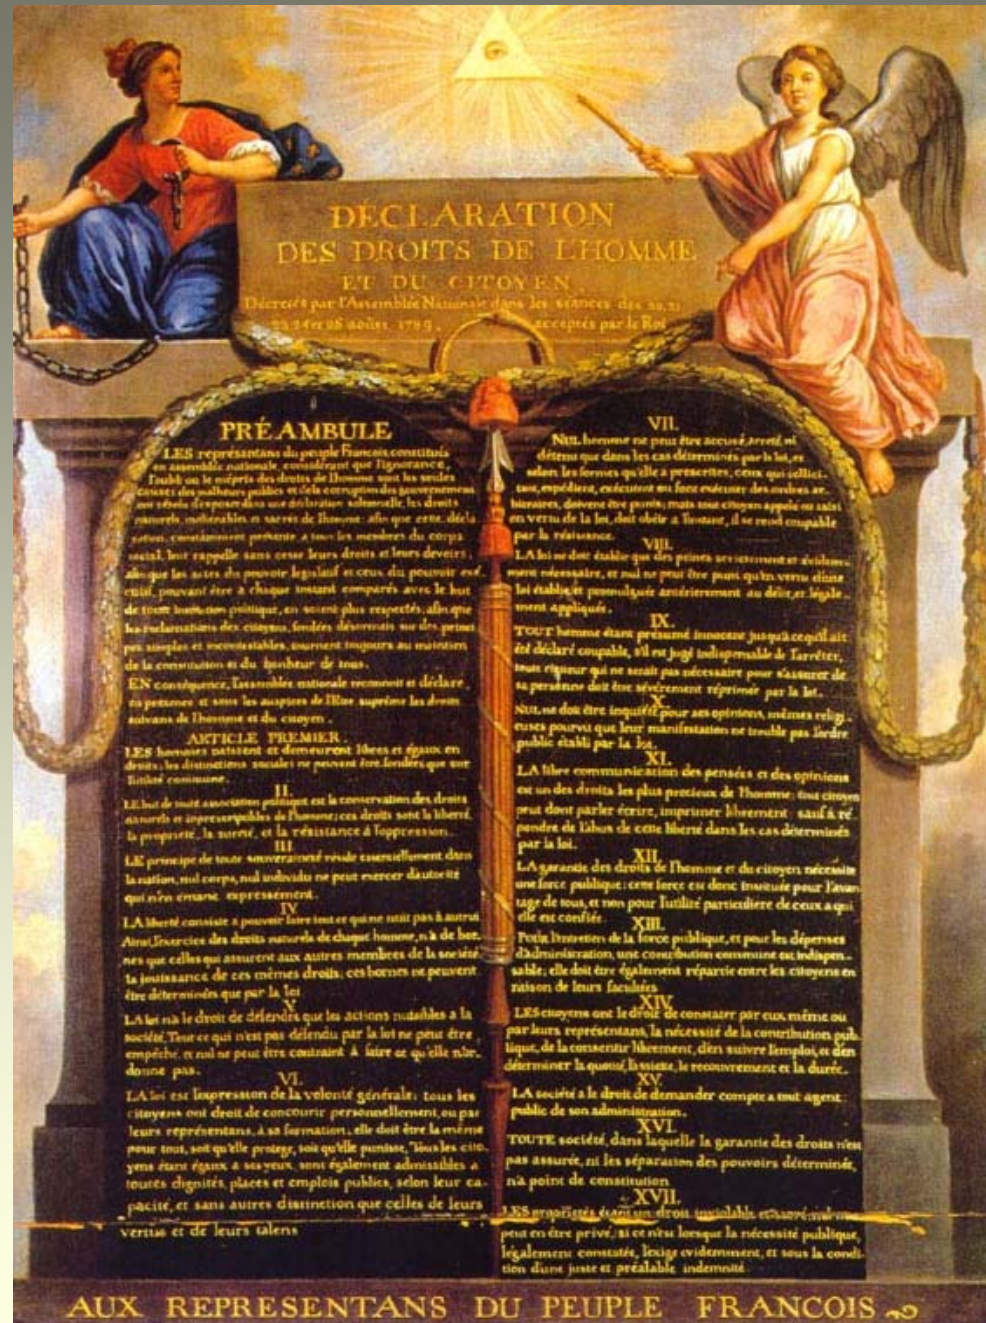 DÉCLARATION
DES DROITS DE L'HOMME
ET DU CITOYEN,
Décretés par l'Assemblée Nationale dans les séances des 20, 21
23, 24 et 26 août 1789, acceptés par le Roi
PRÉAMBULE
LES représentans du peuple François constitués
en assemblée nationale, considérant que l'ignorance,
l'oubli ou le mépris des droits de l'homme sont les seules
causes des malheurs publics et de la corruption des gouvernemens
ont résolu d'exposer dans une déclaration solemnelle, les droits
naturels, inaliénables et sacrés de l'homme, afin que cette décla
ration, constamment présente a tous les membres du corps
social, leur rappelle sans cesse leurs droits et leurs devoirs,
afin que les actes du pouvoir legislatif et ceux du pouvoir exé
cutif, pouvant être a chaque instant comparés avec le but
de toute institution politique, en soient plus respectés, afin que
les reclamations des citoyens, fondées désormais sur des princi
pes simples et incontestables, tournent toujours au maintien
de la constitution et du bonheur de tous.
EN conséquence, l'assemblée nationale reconnoit et déclare,
en presence et sous les auspices de l'Etre suprême les droits
suivans de l'homme et du citoyen.
ARTICLE PREMIER.
LES hommes naissent et demeurent libres et égaux en
droits, les distinctions sociales ne peuvent être fondées que sur
l'utilité commune.
II.
LE but de toute association politique est la conservation des droits
naturels et imprescriptibles de l'homme; ces droits sont la liberté,
la propriété, la sureté, et la résistance à l'oppression.
III.
LE principe de toute souveraineté réside essentiellement dans
la nation, nul corps, nul individu ne peut exercer d'autorité
qui n'en emane expressément.
IV.
LA liberté consiste a pouvoir faire tout ce qui ne nuit pas à autrui
Ainsi, l'exercice des droits naturels de chaque homme, n'a de bor-
nes que celles qui assurent aux autres membres de la société
la jouissance de ces mêmes droits; ces bornes ne peuvent
être déterminées que par la loi
V.
LA loi n'a le droit de défendre que les actions nuisibles a la
société. Tout ce qui n'est pas défendu par la loi ne peut être
empêché, et nul ne peut être contraint à faire ce qu'elle n'or-
donne pas.
VI.
LA loi est l'expression de la volonté générale; tous les
citoyens ont droit de concourir personnellement, ou par
leurs représentans, à sa formation; elle doit être la même
pour tous, soit qu'elle protege, soit qu'elle punisse, Tous les cito-
yens étant égaux a ses yeux, sont également admissibles a
toutes dignités, places et emplois publics, selon leur ca-
pacité, et sans autres distinction que celles de leurs
vertus et de leurs talens
VII.
NUL homme ne peut être accusé, arreté, ni
détenu que dans les cas déterminés par la loi, et
selon les formes qu'elle a prescrites, ceux qui sollici-
tent, expédient, exécutent ou font exécuter des ordres ar-
bitraires, doivent être punis; mais tout citoyen appelé ou saisi
en vertu de la loi, doit obéir a l'instant, il se rend coupable
par la résistance.
VIII.
LA loi ne doit établir que des peines strictement et évidem-
ment nécessaire, et nul ne peut être puni qu'en vertu d'une
loi établie, et promulguée antérieurement au délit, et légale-
ment appliquée.
IX.
TOUT homme étant présumé innocent jusqu'à ce qu'il ait
été déclaré coupable, s'il est jugé indispensable de l'arrêter,
toute rigueur qui ne serait pas nécessaire pour s'assurer de
sa personne doit être sévèrement réprimée par la loi.
X.
NUL ne doit être inquiété pour ses opinions, mêmes religi-
euses pourvu que leur manifestation ne trouble pas l'ordre
public établi par la loi.
XI.
LA libre communication des pensées et des opinions
est un des droits les plus precieux de l'homme; tout citoyen
peut dont parler écrire, imprimer librement: sauf à ré-
pondre de l'abus de cette liberté dans les cas déterminés
par la loi.
XII.
LA garantie des droits de l'homme et du citoyen nécessite
une force publique; cette force est donc instituée pour l'avan-
tage de tous, et non pour l'utilité particuliere de ceux a qui
elle est confiée.
XIII.
POUR l'entretien de la force publique, et pour les dépenses
d'administration, une contribution commune est indispen-
sable; elle doit être également répartie entre les citoyens en
raison de leurs facultées
XIV.
LES citoyens ont le droit de constater par eux même ou
par leurs représentans, la nécessité de la contribution pub-
lique, de la consentir librement, d'en suivre l'emploi, et d'en
déterminer la quotité, l'assiette, le recouvrement et la durée.
XV.
LA société a le droit de demander compte a tout agent
public de son administration.
XVI.
TOUTE société, dans laquelle la garantie des droits n'est
pas assurée, ni les séparation des pouvoirs déterminée,
n'a point de constitution
XVII.
LES propriétés étant un droit inviolable et sacré, nul ne
peut en être privé, si ce n'est lorsque la nécessité publique,
légalement constatée, l'exige evidemment, et sous la condi-
tion d'une juste et préalable indemnité.
AUX REPRESENTANS DU PEUPLE FRANCOIS